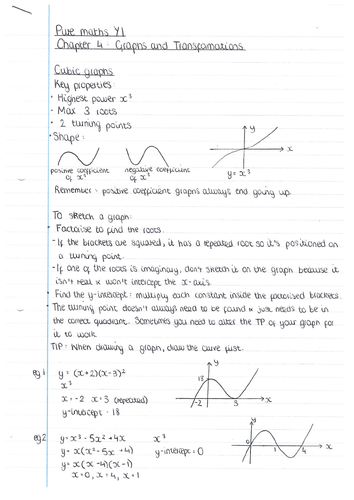 Pure maths Y1
Chapter 4: Graphs and Transformations
Cubic graphs
Key properties:
• Highest power x³
- Max 3 roots
• 2 turning points
• Shape:
positive coefficient of x³
negative coefficient of x³
y
x
y = x³
Remember: positive coefficient graphs always end going up.
To sketch a graph:
• Factorise to find the roots.
- If the brackets are squared, it has a repeated root so it's positioned on
a turning point.
- If one of the roots is imaginary, don't sketch it on the graph because it
isn't real & won't intercept the x-axis.
• Find the y-intercept: multiply each constant inside the factorised brackets.
• The turning point doesn't always need to be found & just needs to be in
the correct quadrant. Sometimes you need to alter the TP of your graph for
it to work.
TIP: When drawing a graph, draw the curve first.
eg 1 y = (x+2)(x-3)²
x³
x = -2 x = 3 (repeated)
y-intercept = 18
y
18
-2
3
x
eg 2 y = x³ - 5x² + 4x x³
y = x(x² - 5x + 4) y-intercept = 0
y = x(x - 4)(x - 1)
x = 0, x = 4, x = 1
y
0
1
4
x